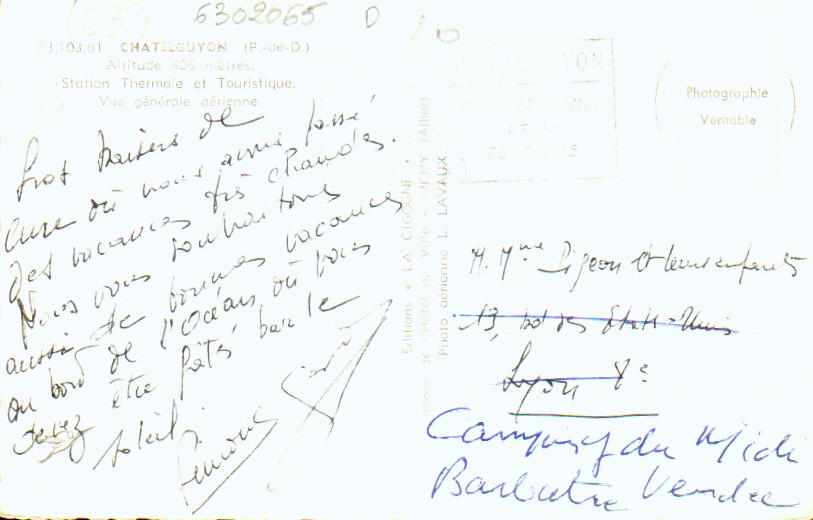 (63)
6302065 D
63.103.61 CHATELGUYON (P.-de-D.)
Altitude 406 mètres.
Station Thermale et Touristique.
Vue générale aérienne.
Gros baisers de
cure où nous avons passé
des vacances très chaudes.
Nous vous souhaitons
aussi de bonnes vacances
au bord de l'Océan, où vous
devez être gâtés par le
soleil.
Simone
Editions « LA CIGOGNE »
Place de l'Hôtel de Ville - VICHY (Allier)
Photo aérienne L. LAVAUX
Photographie
Véritable
M. Mme Pigeon et leurs enfants
13, bd des Etats-Unis
Lyon 8e
Camping du Midi
Barbatre Vendee